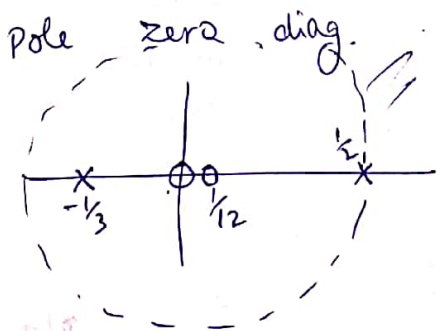 pole zero . diag.
1/2
-1/3
1/12